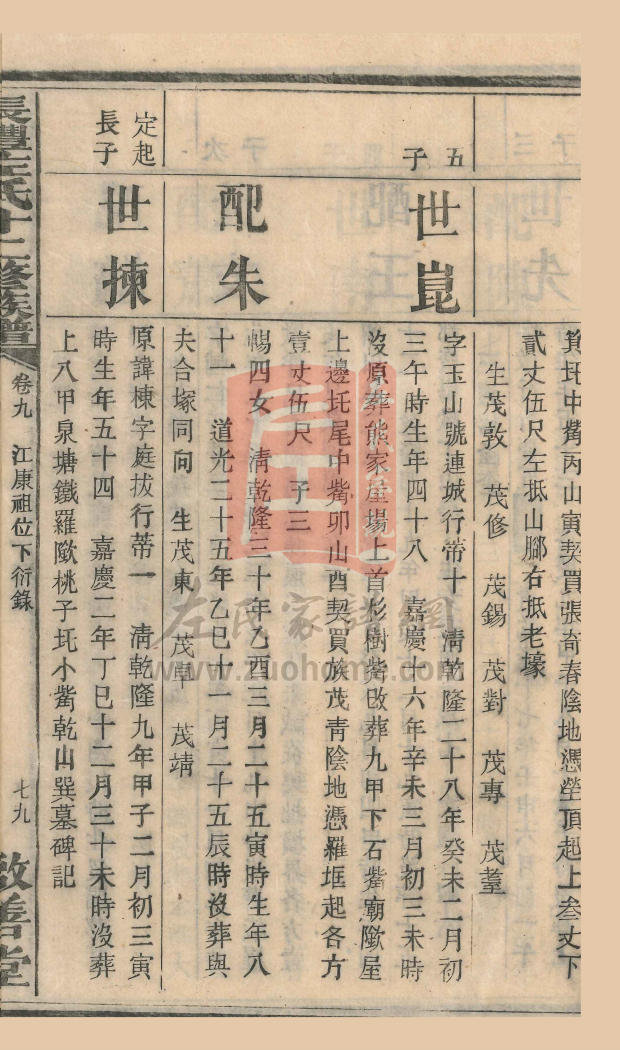 箕圫中嘴丙山寅契買張奇春陰地憑塋頂起上叁丈下
貳丈伍尺左抵山腳右抵老壕
生茂敦 茂修 茂錫 茂對 茂專 茂蓋
五
子
世崑
字玉山號連城行蒂十 清乾隆二十八年癸未二月初
三午時生年四十八 嘉慶十六年辛未三月初三未時
沒原葬熊家屋場上首杉樹嘴改葬九甲下石嘴廟歐屋
上邊圫尾中嘴卯山酉契買族茂靑陰地憑羅堀起各方
壹丈伍尺 子三
配朱
暢四女 清乾隆三十年乙酉三月二十五寅時生年八
十一 道光二十五年乙巳十一月二十五辰時沒葬與
夫合塚同向 生茂東 茂阜 茂靖
定起
長子
世揀
原諱棟字庭拔行蒂一 清乾隆九年甲子二月初三寅
時生年五十四 嘉慶二年丁巳十二月三十未時沒葬
上八甲泉塘鐵羅歐桃子圫小嘴乾山巽墓碑記
長豐左氏十二修族譜 卷九 江康祖位下衍錄 七九 敦善堂
左氏家譜網
www.zuohome.com